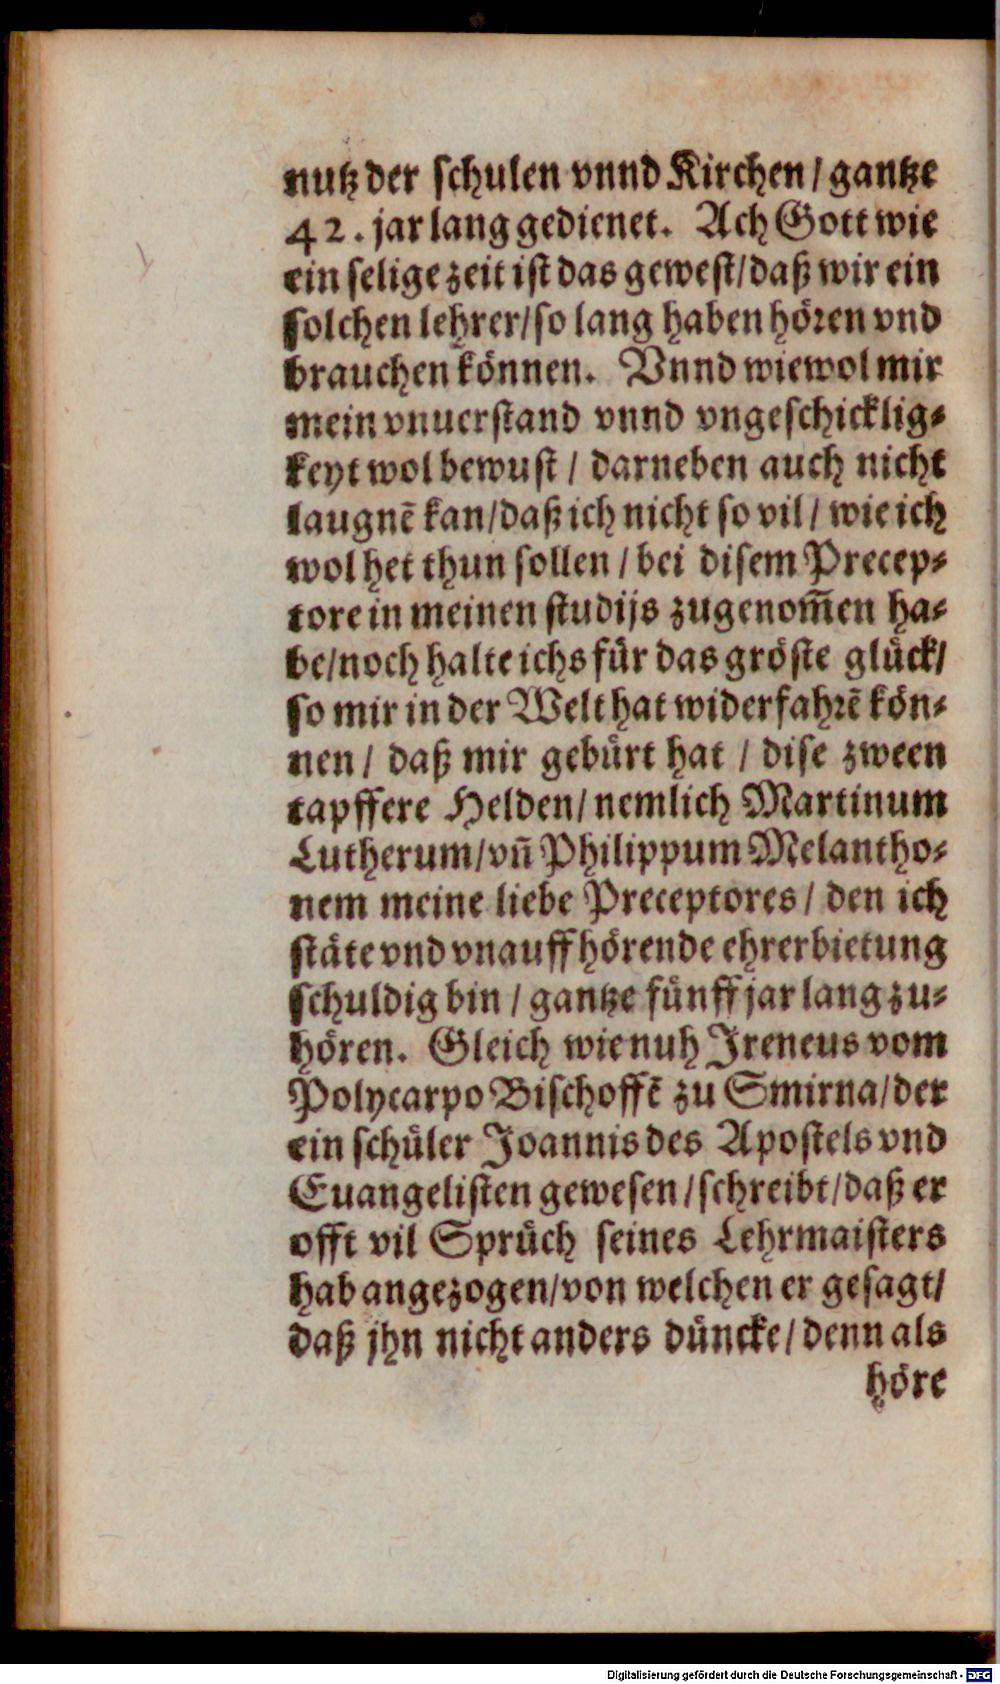 nutz der schulen vnnd Kirchen / gantze
42. jar lang gedienet. Ach Gott wie
ein selige zeit ist das gewest/daß wir ein
solchen lehrer/so lang haben hören vnd
brauchen können. Vnnd wiewol mir
mein vnuerstand vnnd vngeschicklig-
keyt wol bewust / darneben auch nicht
laugnē kan/daß ich nicht so vil / wie ich
wol het thun sollen / bei disem Precep-
tore in meinen studijs zugenom̄en ha-
be/noch halte ichs für das gröste glück/
so mir in der Welt hat widerfahrē kön-
nen / daß mir gebürt hat / dise zween
tapffere Helden/ nemlich Martinum
Lutherum/vn̄ Philippum Melantho-
nem meine liebe Preceptores / den ich
stäte vnd vnauffhörende ehrerbietung
schuldig bin / gantze fünff jar lang zu-
hören. Gleich wie nuh Ireneus vom
Polycarpo Bischoffē zu Smirna/der
ein schüler Joannis des Apostels vnd
Euangelisten gewesen/schreibt/daß er
offt vil Sprüch seines Lehrmaisters
hab angezogen/von welchen er gesagt/
daß jhn nicht anders düncke/denn als
höre
Digitalisierung gefördert durch die Deutsche Forschungsgemeinschaft - DFG